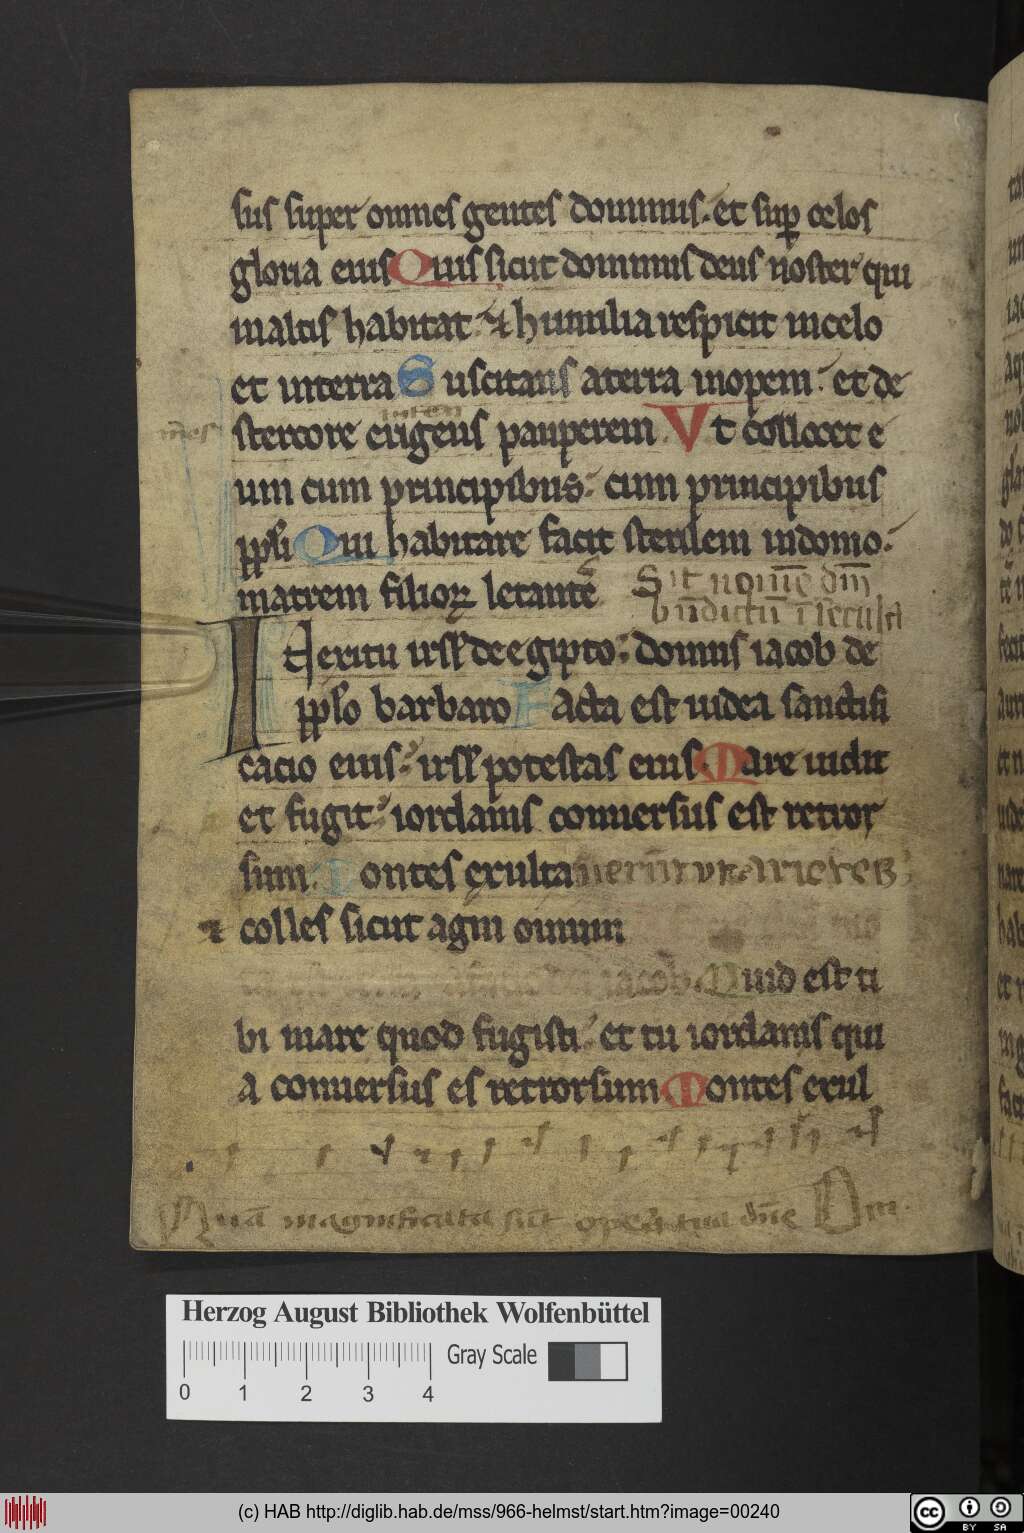 sus super omnes gentes dominus. et sup celos
gloria eius Quis sicut dominus deus noster qui
inaltis habitat. et humilia respicit incelo
et interra Suscitans aterra inopem. et de
stercore erigens pauperem Vt collocet e
um cum principibus. cum principibus
ppli Qui habitare facit sterilem indomo.
matrem filioꝝ letantē Sit nomē dm̄
bn̄dictū
In exitu irsl de egipto. domus iacob de
pplo barbaro Facta est iudea sanctifi
cacio eius. irsl potestas eius. Mare uidit
et fugit. iordanis conuersus est retror
sum. Montes exulta
colles sicut agni ouium
iacob. Quid est ti
bi mare quod fugisti. et tu iordanis qui
a conuersus es retrorsum Montes exul
Quā magnificata sūt opera tua dn̄e
Herzog August Bibliothek Wolfenbüttel
0 1 2 3 4 Gray Scale
(c) HAB http://diglib.hab.de/mss/966-helmst/start.htm?image=00240
cc BY SA